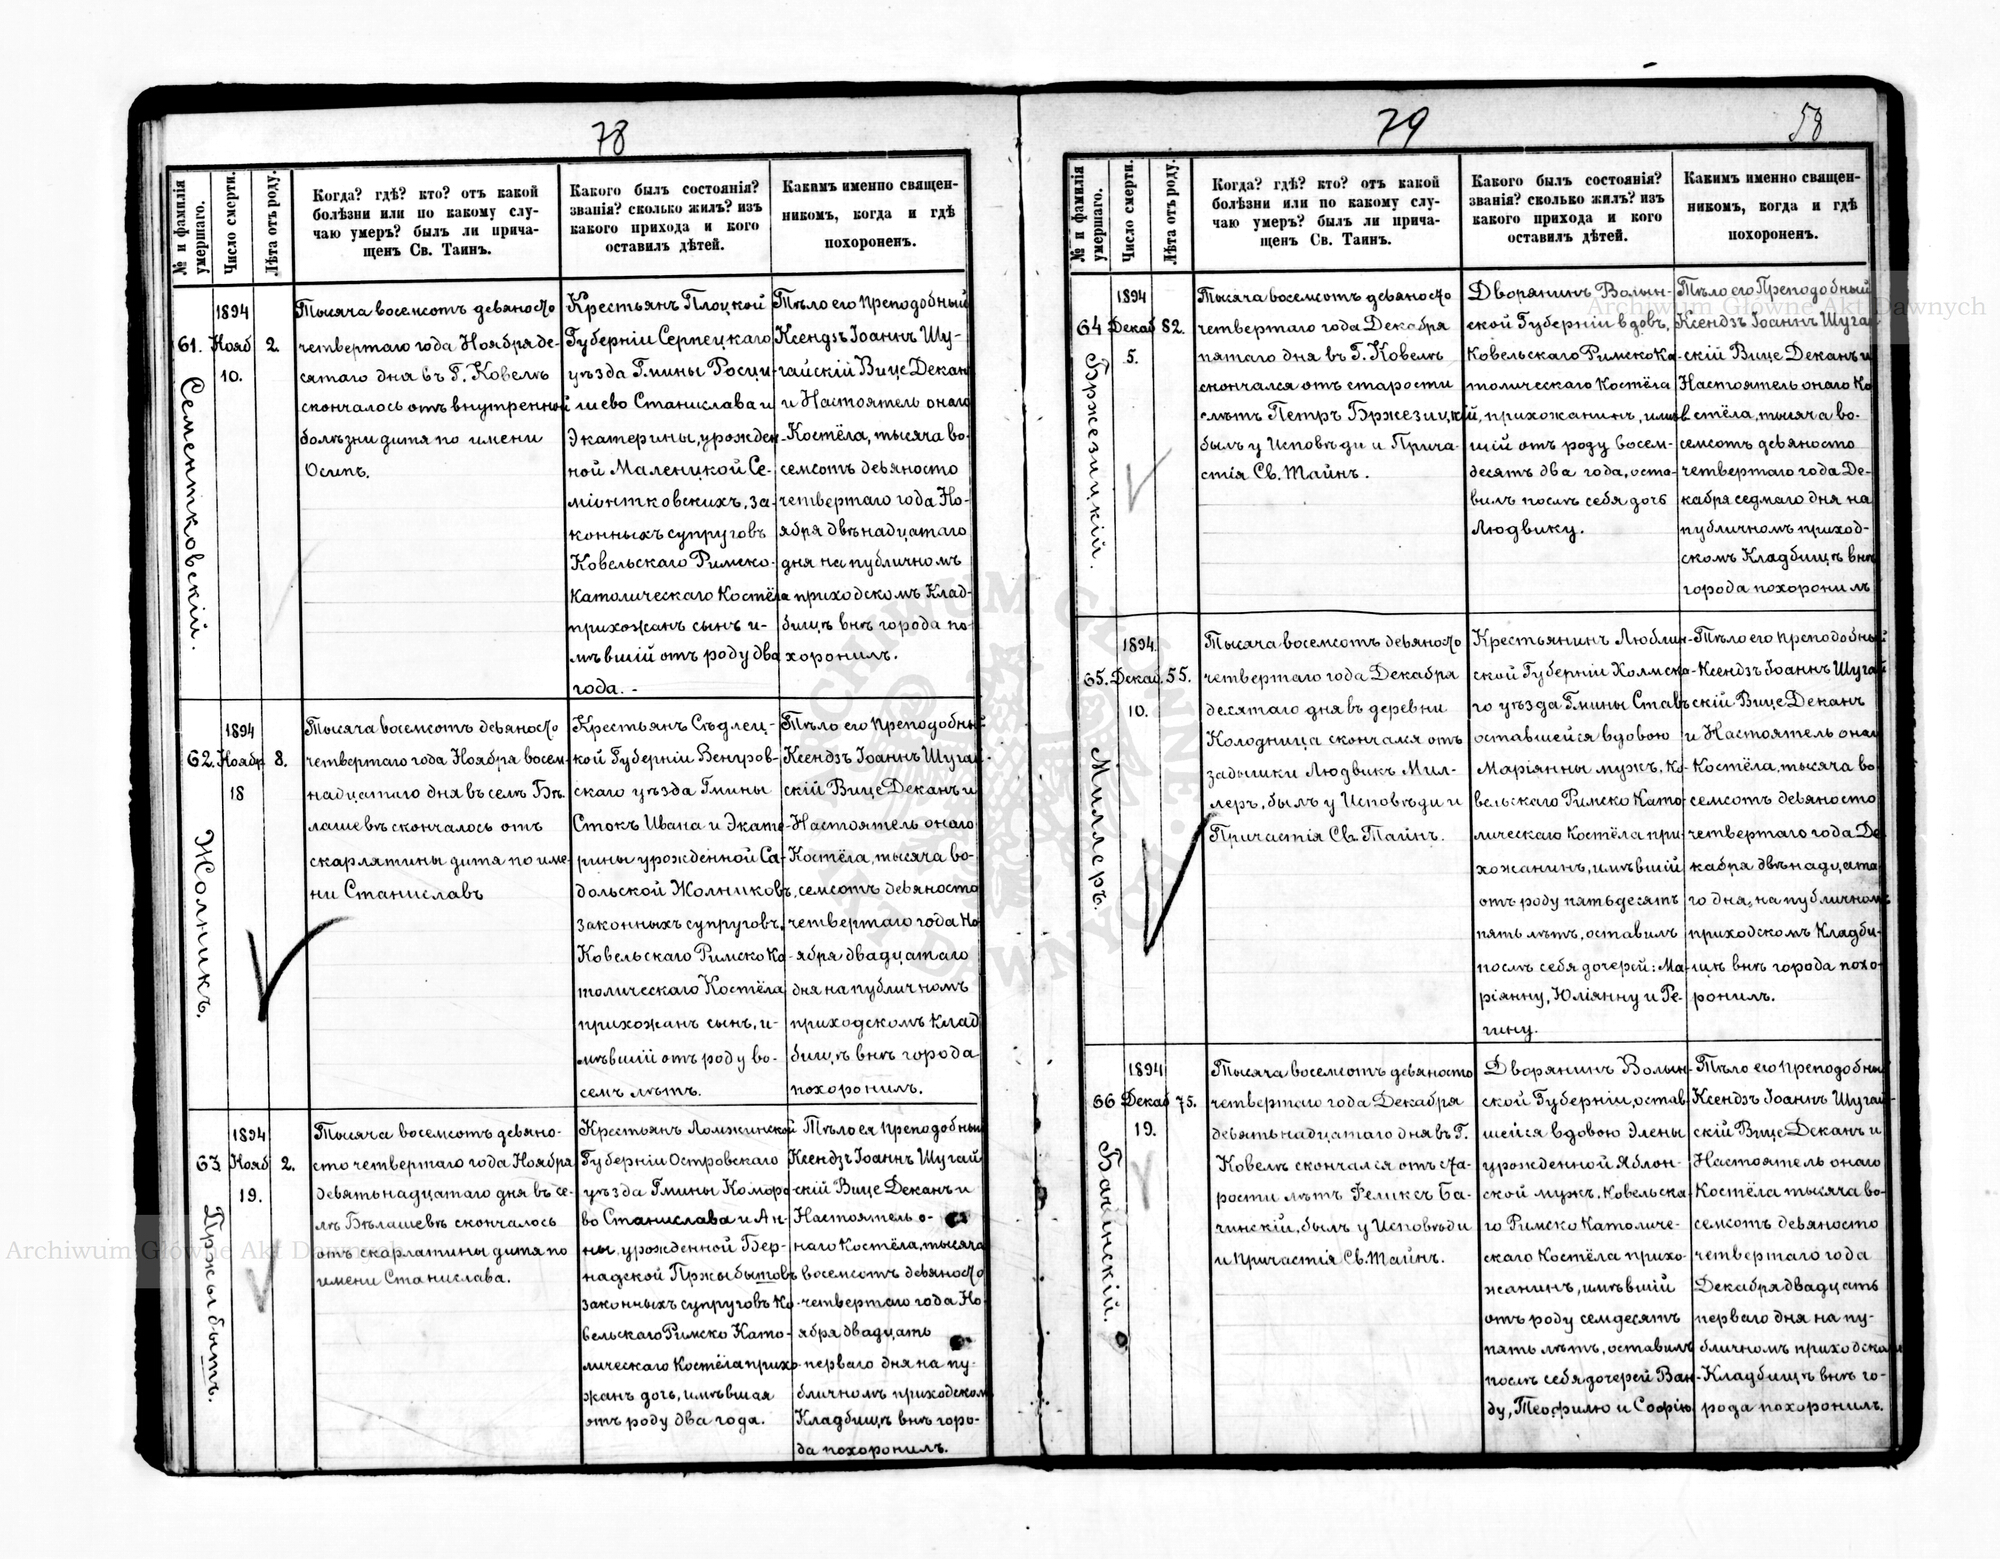 78
№ и фамилія умершаго.
Число смерти.
Лѣта отъ роду.
Когда? гдѣ? кто? отъ какой
болѣзни или по какому слу-
чаю умеръ? былъ ли прича-
щенъ Св. Таинъ.
Какого былъ состоянія?
званія? сколько жилъ? изъ
какого прихода и кого
оставилъ дѣтей.
Какимъ именно священ-
никомъ, когда и гдѣ
похороненъ.
61.
Сементковскій.
1894
Нояб
10.
2.
Тысяча восемсотъ девяносто
четвертаго года Ноября де-
сятаго дня въ Г. Ковелѣ
скончалось отъ внутренной
болѣзни дитя по имени
Осипъ.
Крестьянъ Плоцкой
Губерніи Серпецкаго
уѣзда Гмины Росци-
шево Станислава и
Экатерины, урожден-
ной Маленицкой Се-
міонтковскихъ, за-
конныхъ супруговъ
Ковельскаго Римско-
Католическаго Костёла
прихожанъ сынъ и-
мѣвшій отъ роду два
года. -
Тѣло его Преподобный
Ксендзъ Іоаннъ Шу-
гайскій Вице Деканъ
и Настоятель онаго
Костёла, тысяча во-
семсотъ девяносто
четвертаго года Но-
ября двѣнадцатаго
дня на публичномъ
приходскомъ Клад-
бищѣ внѣ города по-
хоронилъ.
62.
Жолникъ.
1894
Ноябр
18
8.
Тысяча восемсотъ девяносто
четвертаго года Ноября восем-
надцатаго дня въ селѣ Бѣ-
лашевѣ скончалось отъ
скарлятины дитя по име-
ни Станиславъ
Крестьянъ Сѣдлец-
кой Губерніи Венгров-
скаго уѣзда Гмины
Стокъ Ивана и Экате-
рины урожденной Са-
дольской Жолниковъ,
законныхъ супруговъ,
Ковельскаго Римско Ка-
толическаго Костёла
прихожанъ сынъ, и-
мѣвшій отъ роду во-
семъ лѣтъ.
Тѣло его Преподобный
Ксендзъ Іоаннъ Шугай-
скій Вице Деканъ и
Настоятель онаго
Костёла, тысяча во-
семсотъ девяносто
четвертаго года Но-
ября двадцатаго
дня на публичномъ
приходскомъ клад
бищѣ внѣ города
похоронилъ.
63.
Пржыбытъ.
1894
Нояб
19.
2.
Тысяча восемсотъ девяно-
сто четвертаго года Ноября
девятьнадцатаго дня въ се-
лѣ Бѣлашевѣ скончалось
отъ скарлатины дитя по
имени Станислава.
Крестьянъ Ломжинской
Губерніи Островскаго
уѣзда Гмины Коморо-
во Станислава и Ан-
ны, урожденной Бер-
надской Пржыбытовъ
законныхъ супруговъ Ко-
вельскаго Римско Като-
лическаго Костёла прихо-
жанъ дочь, имѣвшая
отъ роду два года.
Тѣло ея Преподобный
Ксендзъ Іоаннъ Шугай
скій Вице Деканъ и
Настоятель о-
наго Костёла, тысяча
восемсотъ девяносто
четвертаго года Но-
ября двадцать
перваго дня на пу-
бличномъ приходском
Кладбищѣ внѣ горо-
да похоронилъ.
79
58
№ и фамилія умершаго.
Число смерти.
Лѣта отъ роду.
Когда? гдѣ? кто? отъ какой
болѣзни или по какому слу-
чаю умеръ? былъ ли прича-
щенъ Св. Таинъ.
Какого былъ состоянія?
званія? сколько жилъ? изъ
какого прихода и кого
оставилъ дѣтей.
Какимъ именно священ-
никомъ, когда и гдѣ
похороненъ.
64
Бржезицкій.
1894
Декаб
5.
82.
Тысяча восемсотъ девяносто
четвертаго года Декабря
пятаго дня въ Г. Ковелѣ
скончался отъ старости
лѣтъ Петръ Бржезицкій,
былъ у Исповѣди и Прича-
стія Св. Тайнъ.
Дворянинъ Волын-
ской Губерніи вдовъ,
Ковельскаго Римско Ка-
толическаго Костёла
прихожанинъ, имѣв
шій отъ роду восем-
десятъ два года, оста-
вилъ послѣ себя дочь
Людвику.
Тѣло его Преподобный
Ксендзъ Іоаннъ Шугай
скій Вице Деканъ и
Настоятель онаго Ко
стёла, тысяча во-
семсотъ девяносто
четвертаго года Де-
кабря седмаго дня на
публичномъ приход-
скомъ Кладбищѣ внѣ
города похоронилъ
65.
Миллеръ.
1894.
Декаб.
10.
55.
Тысяча восемсотъ девяносто
четвертаго года Декабря
десятаго дня въ деревни
Колодница скончался отъ
задышки Людвикъ Мил-
леръ, былъ у Исповѣди и
Причастія Св. Тайнъ.
Крестьянинъ Люблин-
ской Губерніи Холмска-
го уѣзда Гмины Ставъ
оставшейся вдовою
Маріянны мужъ, Ко-
вельскаго Римско Като-
лическаго Костёла при-
хожанинъ, имѣвшій
отъ роду пятьдесятъ
пять лѣтъ, оставилъ
послѣ себя дочерей: Ма-
ріянну, Юліянну и Ре-
гину.
Тѣло его Преподобный
Ксендзъ Іоаннъ Шугай
скій Вице Деканъ
и Настоятель онаго
Костёла, тысяча во
семсотъ девяносто
четвертаго года Де
кабря двѣнадцата
го дня, на публичномъ
приходскомъ Кладби-
щѣ внѣ города похо-
ронилъ.
66
Бачинскій.
1894
Декаб
19.
75.
Тысяча восемсотъ девяносто
четвертаго года Декабря
девятьнадцатаго дня въ Г.
Ковелѣ скончался отъ ста-
рости лѣтъ Феликсъ Ба-
чинскій, былъ у Исповѣди
и Причастія Св. Тайнъ.
Дворянинъ Волын-
ской Губерніи, остав
шейся вдовою Элены
урожденной Яблон-
ской мужъ, Ковельска-
го Римско Католиче-
скаго Костёла прихо-
жанинъ, имѣвшій
отъ роду семдесятъ
пять лѣтъ, оставилъ
послѣ себя дочерей Ван-
ду, Теофилю и Софію
Тѣло его Преподобный
Ксендзъ Іоаннъ Шугай-
скій Вице Деканъ и
Настоятель онаго
Костёла тысяча во-
семсотъ девяносто
четвертаго года
Декабря двадцать
перваго дня на пу-
бличномъ приходском
Кладбищѣ внѣ го-
рода похоронилъ.
Archiwum Główne Akt Dawnych
Archiwum Główne Akt Dawnych
ARCHIWUM GŁÓWNE AKT DAWNYCH